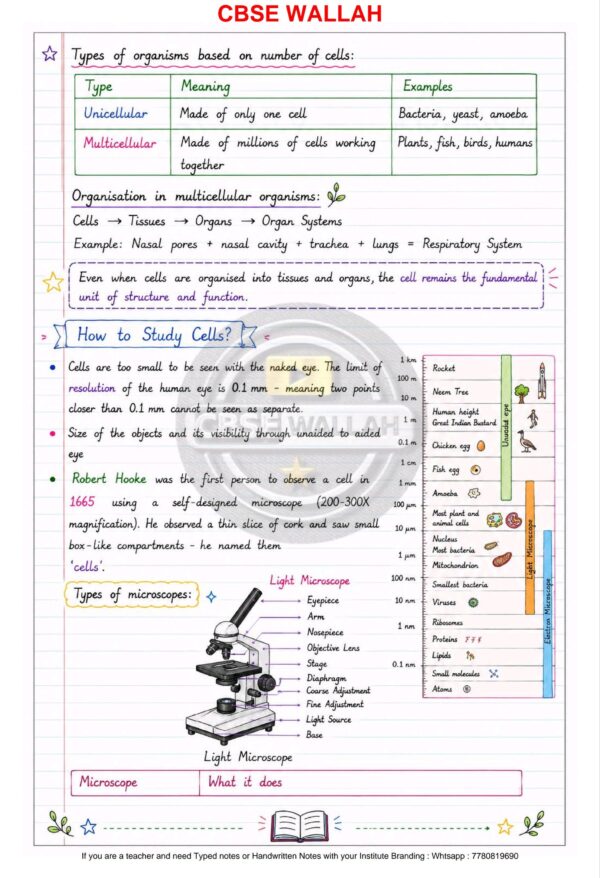 CBSE WALLAH
Types of organisms based on number of cells:
Type Meaning Examples
Unicellular Made of only one cell Bacteria, yeast, amoeba
Multicellular Made of millions of cells working together Plants, fish, birds, humans
Organisation in multicellular organisms:
Cells → Tissues → Organs → Organ Systems
Example: Nasal pores + nasal cavity + trachea + lungs = Respiratory System
Even when cells are organised into tissues and organs, the cell remains the fundamental
unit of structure and function.
How to Study Cells?
Cells are too small to be seen with the naked eye. The limit of
resolution of the human eye is 0.1 mm - meaning two points
closer than 0.1 mm cannot be seen as separate.
Size of the objects and its visibility through unaided to aided
eye
Robert Hooke was the first person to observe a cell in
1665 using a self-designed microscope (200-300X
magnification). He observed a thin slice of cork and saw small
box-like compartments - he named them
'cells'.
1 km
100 m
10 m
1 m
0.1 m
1 cm
1 mm
100 µm
10 µm
1 µm
100 nm
10 nm
1 nm
0.1 nm
Rocket
Neem Tree
Human height
Great Indian Bustard
Chicken egg
Fish egg
Amoeba
Most plant and
animal cells
Nucleus
Most bacteria
Mitochondrion
Smallest bacteria
Viruses
Ribosomes
Proteins
Lipids
Small molecules
Atoms
Unaided eye
Light Microscope
Electron Microscope
Types of microscopes:
Light Microscope
Eyepiece
Arm
Nosepiece
Objective Lens
Stage
Diaphragm
Coarse Adjustment
Fine Adjustment
Light Source
Base
Light Microscope
Microscope What it does
CBSE WALLAH
If you are a teacher and need Typed notes or Handwritten Notes with your Institute Branding : Whtsapp : 7780819690